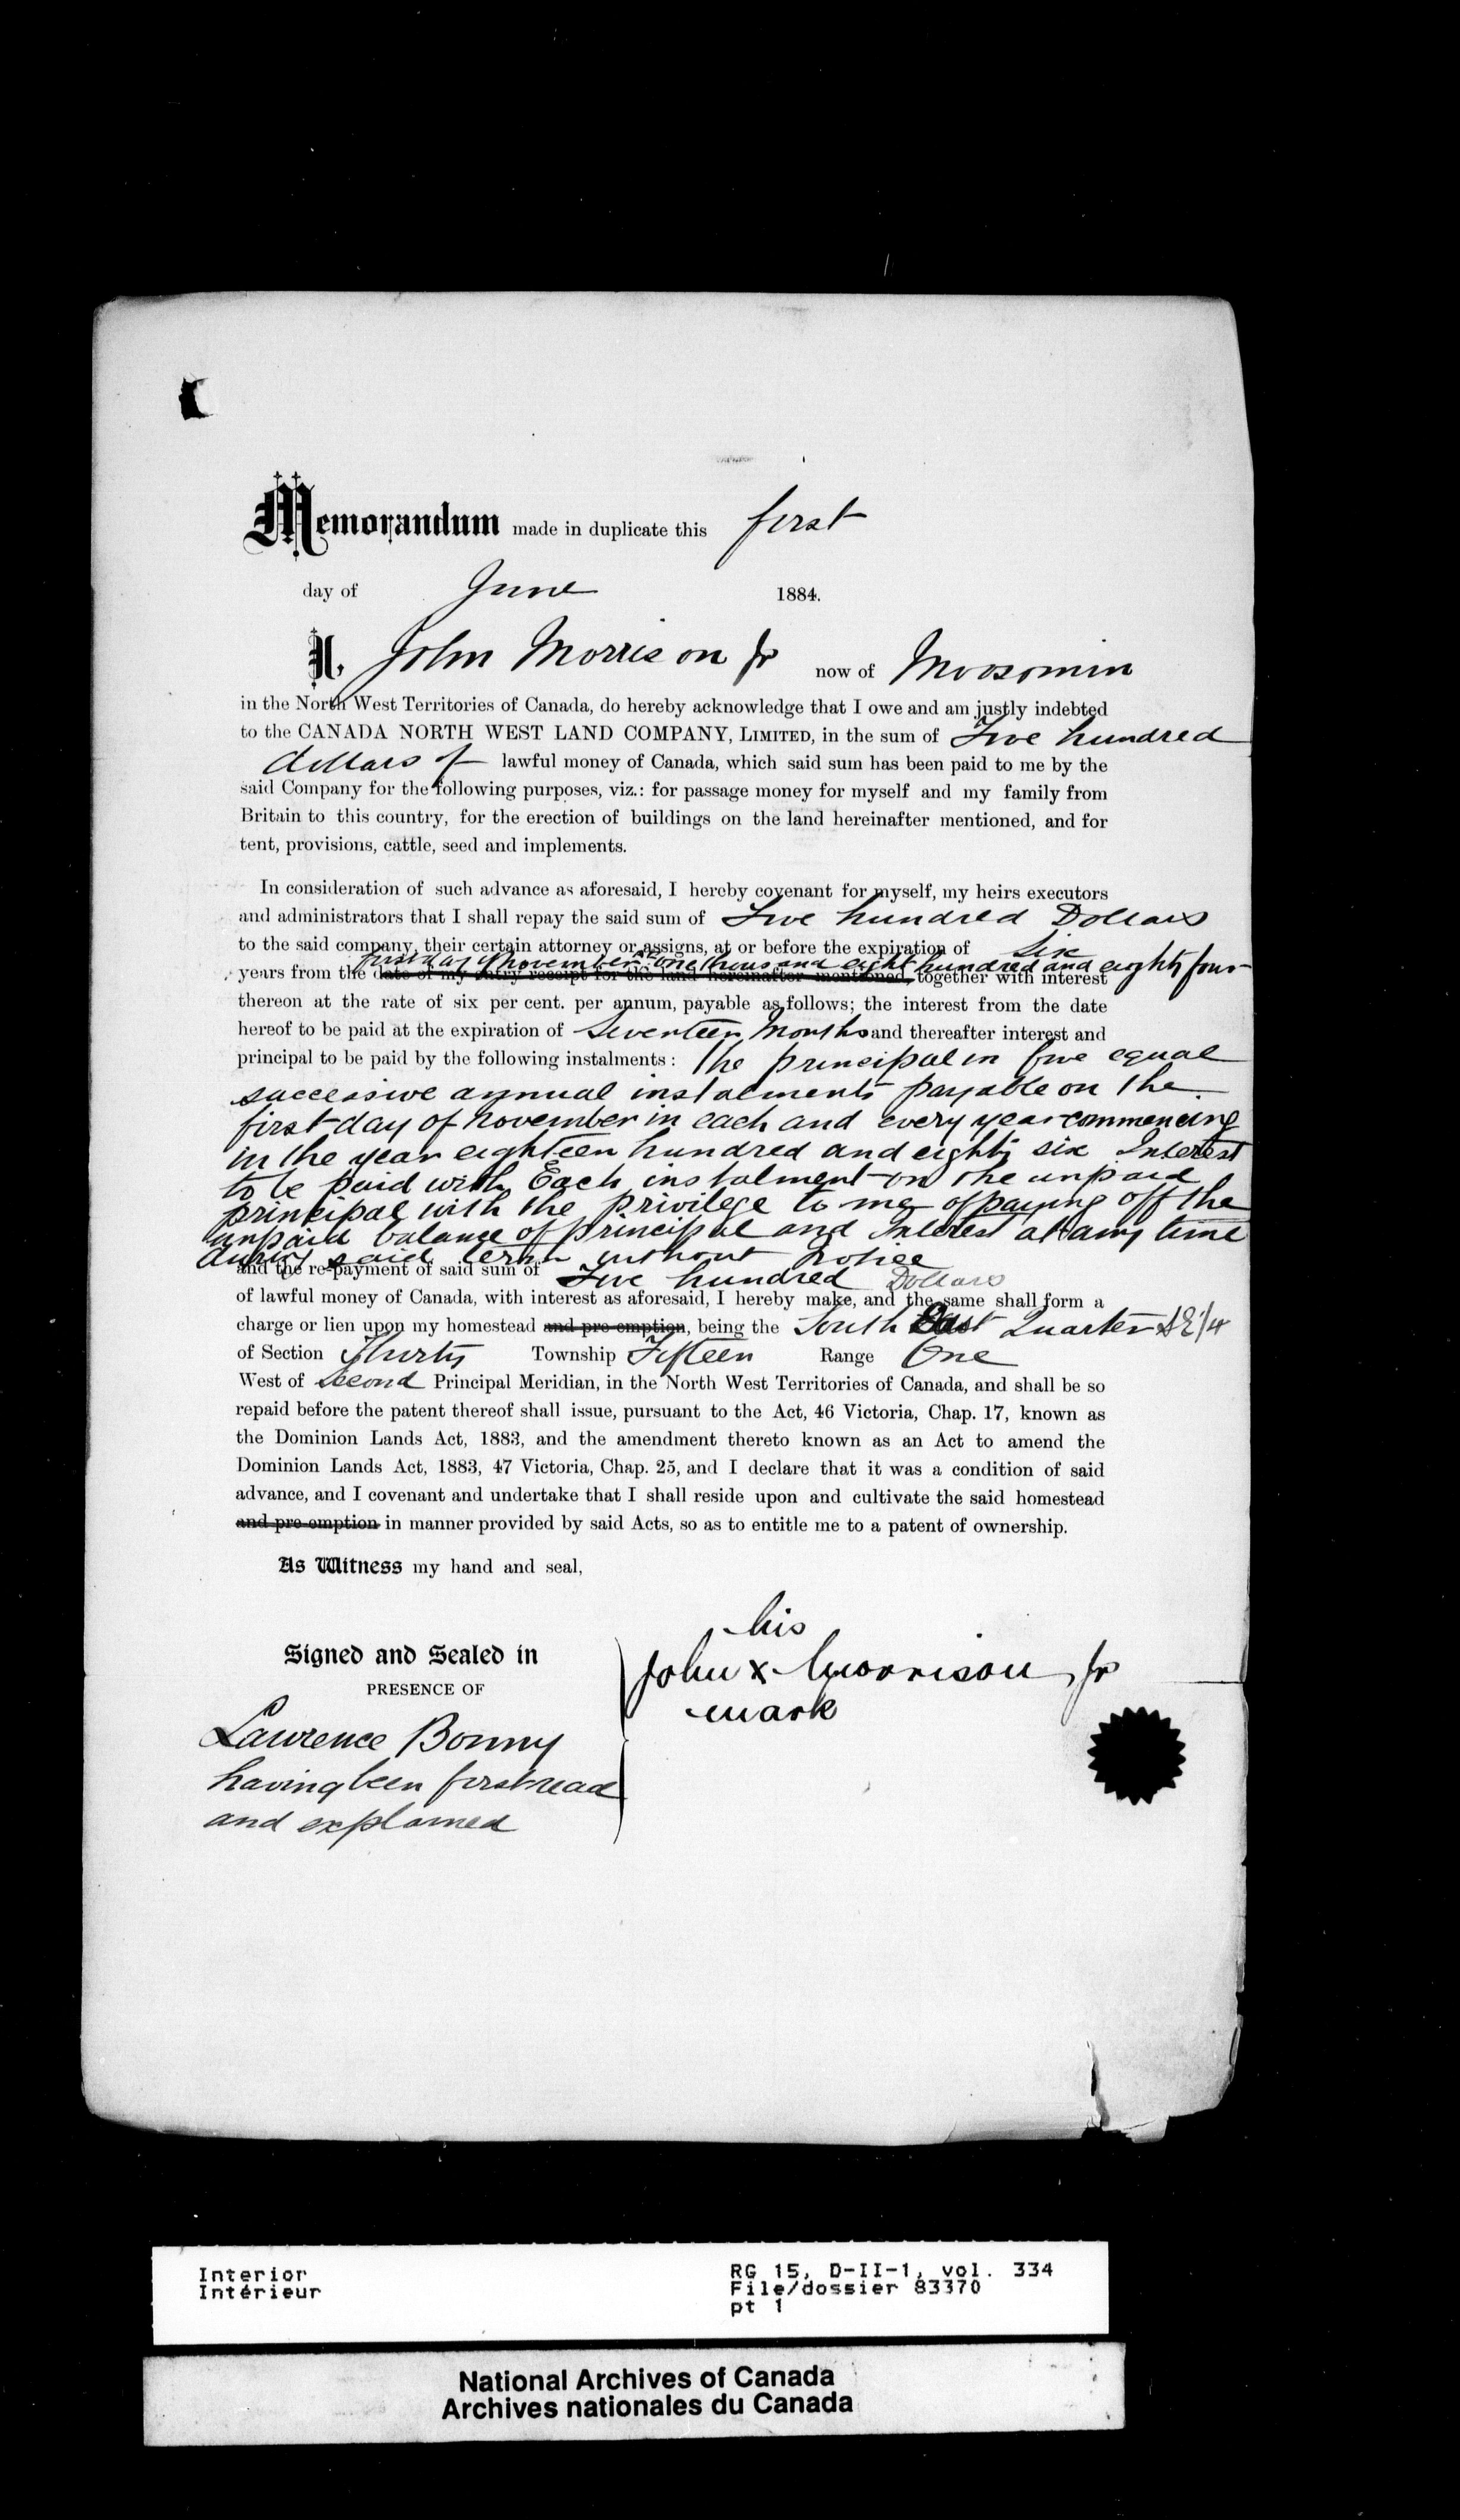 Memorandum made in duplicate this first
day of June 1884.
I, John Morrison Jr now of Moosomin
in the North West Territories of Canada, do hereby acknowledge that I owe and am justly indebted
to the CANADA NORTH WEST LAND COMPANY, LIMITED, in the sum of Five hundred
dollars of lawful money of Canada, which said sum has been paid to me by the
said Company for the following purposes, viz.: for passage money for myself and my family from
Britain to this country, for the erection of buildings on the land hereinafter mentioned, and for
tent, provisions, cattle, seed and implements.
In consideration of such advance as aforesaid, I hereby covenant for myself, my heirs executors
and administrators that I shall repay the said sum of Five hundred Dollars
to the said company, their certain attorney or assigns, at or before the expiration of Six
first day of November one thousand eight hundred and eighty four
years from the date of my entry receipt for the land hereinafter mentioned, together with interest
thereon at the rate of six per cent. per annum, payable as follows; the interest from the date
hereof to be paid at the expiration of Seventeen Months and thereafter interest and
principal to be paid by the following instalments: The principal in five equal
successive annual instalments payable on the
first day of November in each and every year commencing
in the year eighteen hundred and eighty six Interest
to be paid with Each instalment on the unpaid
principal with the privilege to me of paying off the
unpaid balance of principal and Interest at any time
during said term without notice
and the re-payment of said sum of Five hundred Dollars
of lawful money of Canada, with interest as aforesaid, I hereby make, and the same shall form a
charge or lien upon my homestead and pre-emption, being the South East Quarter SE 1/4
of Section Thirty Township Fifteen Range One
West of Second Principal Meridian, in the North West Territories of Canada, and shall be so
repaid before the patent thereof shall issue, pursuant to the Act, 46 Victoria, Chap. 17, known as
the Dominion Lands Act, 1883, and the amendment thereto known as an Act to amend the
Dominion Lands Act, 1883, 47 Victoria, Chap. 25, and I declare that it was a condition of said
advance, and I covenant and undertake that I shall reside upon and cultivate the said homestead
and pre-emption in manner provided by said Acts, so as to entitle me to a patent of ownership.
As Witness my hand and seal,
his
Signed and Sealed in John x Morrison Jr
PRESENCE OF mark
Lawrence Bonny
having been first read
and explained
Interior RG 15, D-II-1, vol. 334
Intérieur File/dossier 83370
pt 1
National Archives of Canada
Archives nationales du Canada